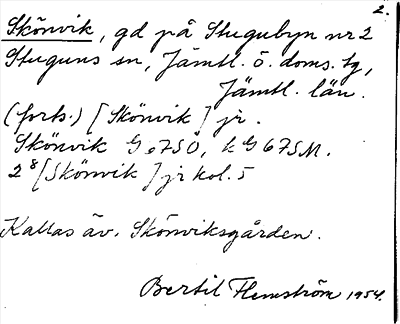 2.
Skönvik, gd på Stugubyn nr 2
Stuguns sn, Jämtl. ö. doms. tg,
Jämtl. län.
(forts.) [Skönvik] jr.
Skönvik G67SÖ, k G67SM.
2⁸ [Skönvik] jr kol. 5
Kallas äv. Skönviksgården.
Bertil Flemström 1954.